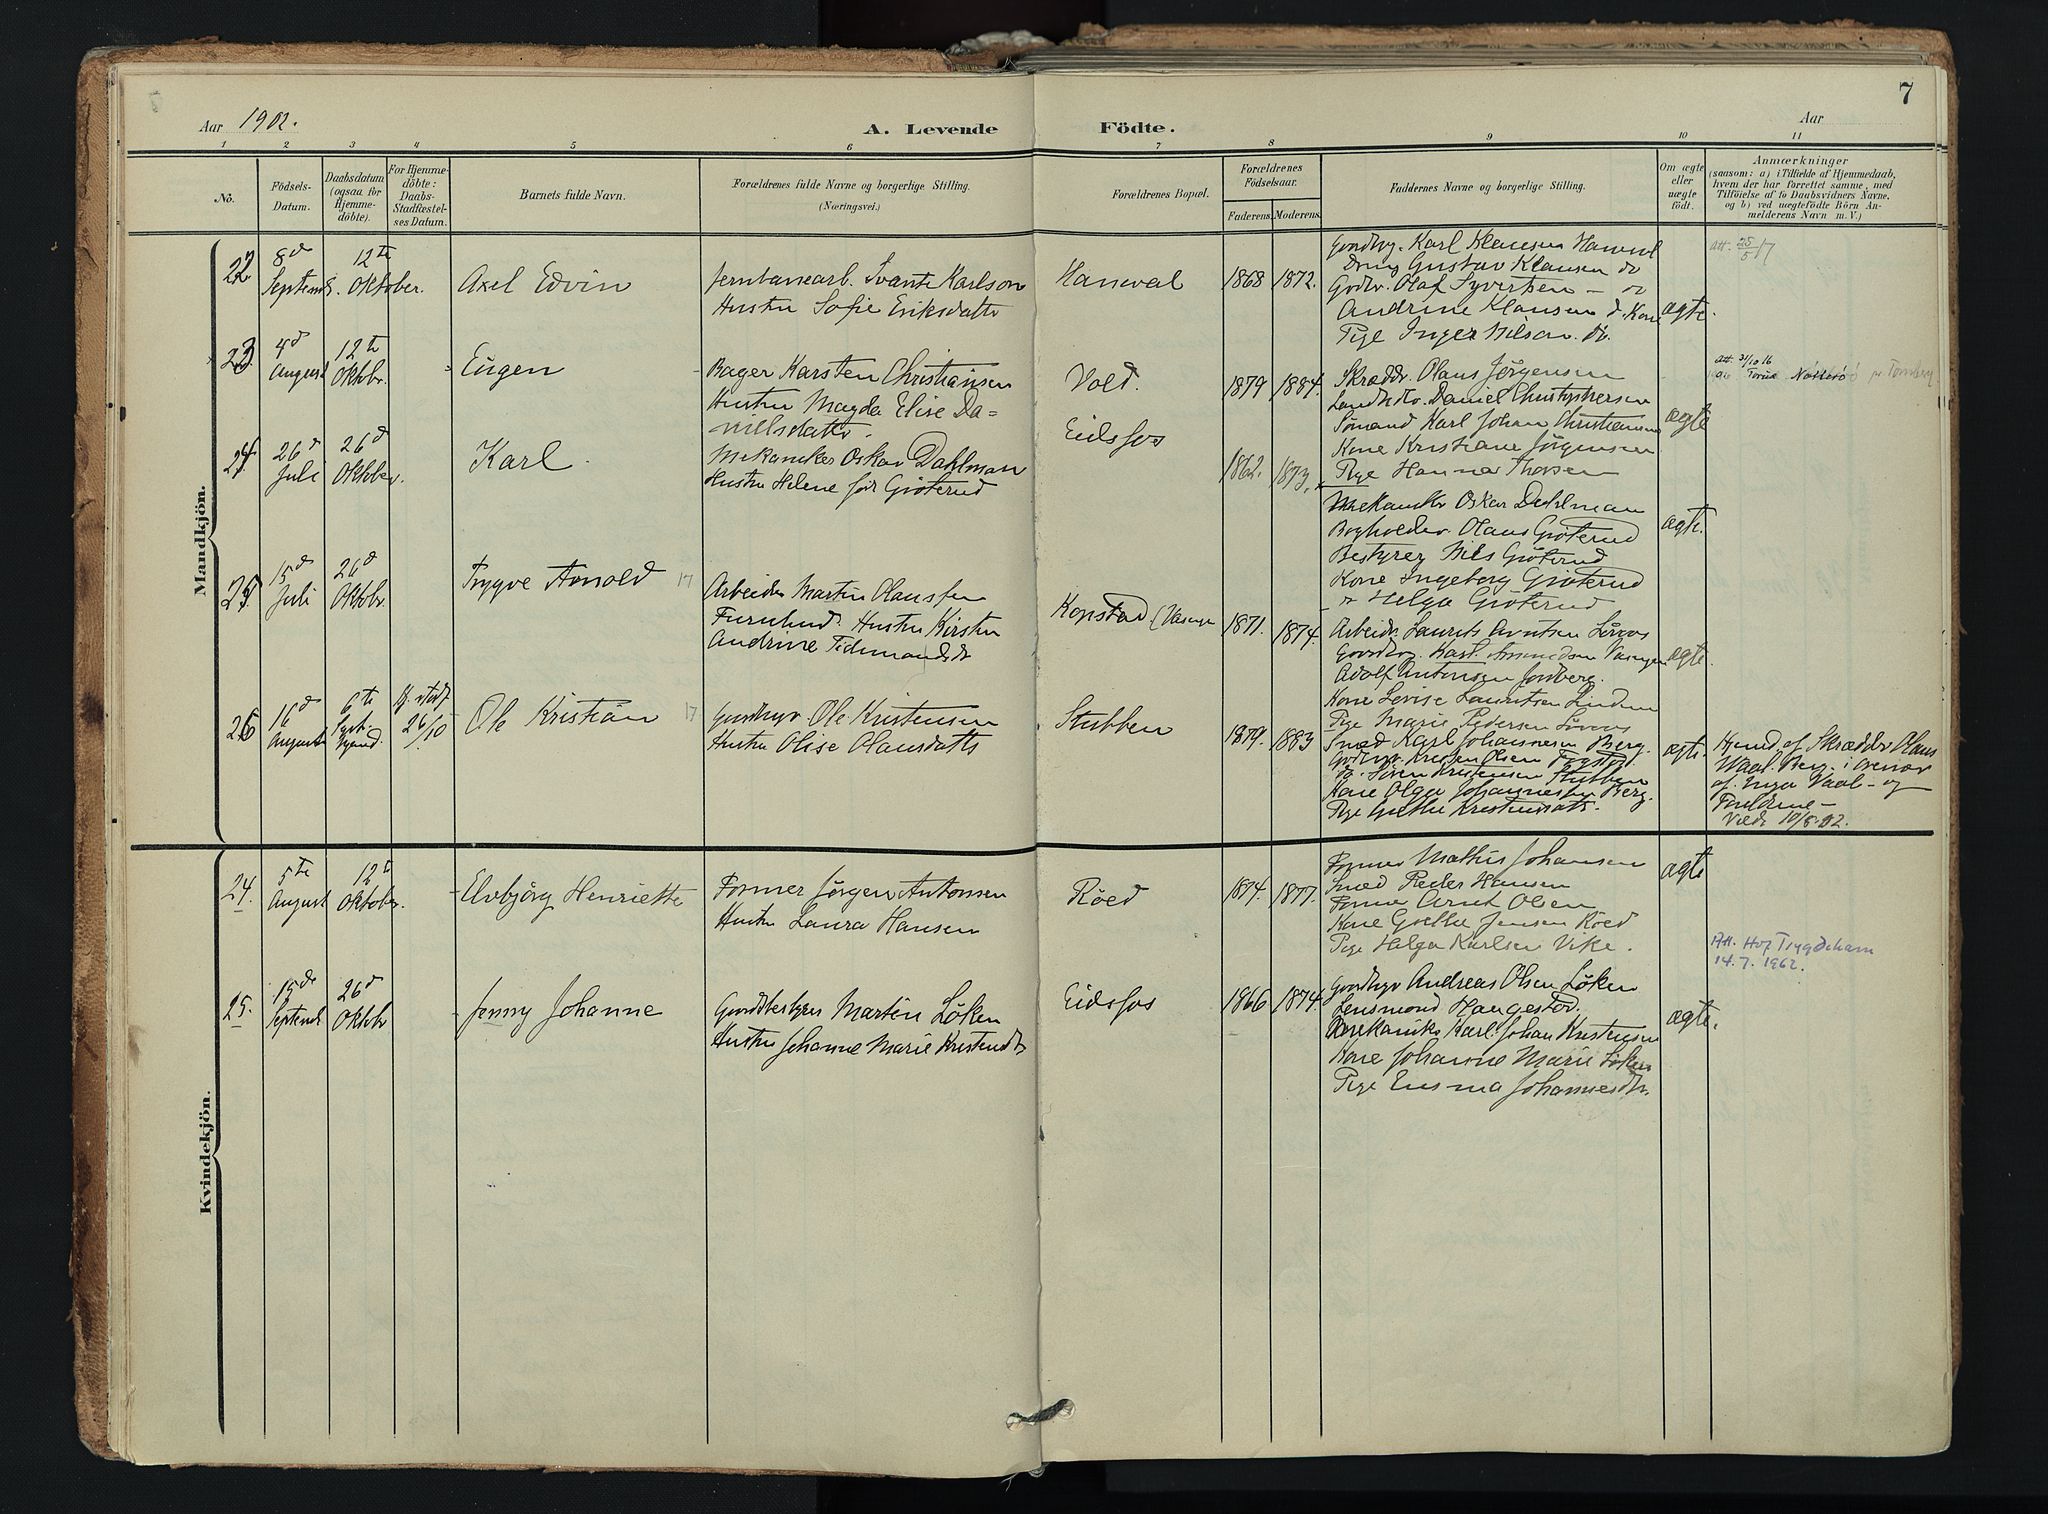 7
Aar 1902.
A. Levende Födte.
Aar
1 2 3 4 5 6 7 8 9 10 11
No.
Födsels-
Datum.
Daabsdatum
(ogsaa for
Hjemme-
döbte).
For Hjemme-
döbte:
Daabs-
Stadfæstel-
ses Datum.
Barnets fulde Navn.
Forældrenes fulde Navne og borgerlige Stilling.
(Næringsvei.)
Forældrenes Bopæl.
Forældrenes
Födselsaar.
Faderens. Moderens.
Faddernes Navne og borgerlige Stilling.
Om ægte
eller
uægte
födt.
Anmærkninger
(saasom: a) i Tilfælde af Hjemmedaab,
hvem der har forrettet samme, med
Tilföielse af to Daabsvidners Navne,
og b) ved uægtefödte Börn An-
melderens Navn m. V.)
Mandkjön.
22
8d
Septemb.
12te
Oktober.
Axel Edvin
Jernbanearb. Svante Karlson
Hustru Sofie Eriksdatter
Haneval
1868 1872.
Gaardbrg. Karl Klausen Haneval
Dreng Gustav Klausen do
Grdbr. Olaf Syvertsen - do
Andrine Klausen d. Kone
Pige Inger Nilsen. do.
ægte.
Att. 25/5 17
23
4d
August
12te
Oktbr.
Eugen
Bager Karsten Christiansen
Hustru Magda Elise Da=
nielsdatter.
Vold.
1879 1884.
Skrædder. Olaus Jörgensen
Landh. Daniel Christophersen
Sömand Karl Johan Christiansen
Kone Kristiane Jörgensen
Pige Hanna Thorsen
ægte
Att. 31/10 16
Nötterö pr Tönsberg
24
26d
Juli
26d
Oktober.
Karl
Mekaniker Oskar Dahlman
Hustru Helene för Gröterud
Eidsfos
1862. 1873.
Mekaniker Oskar Dahlman
Bogholder Olaus Gröterud
Bestyrer Nils Gröterud
Kone Ingeborg Gröterud
" Helga Gröterud
ægte.
25
15d
Juli
26d
Oktbr.
Trygve Arnold 17
Arbeider Martin Olaussen
Furulund. Hustru Kirsten
Andrine Tidemandsdt
Kopstad (Vasengen
1871. 1874.
Arbeider Laurits Arntsen
Gaardbrg. Karl Amundsen Vasengen
Adolf Antonsen Jordberg.
Kone Levise Lauritsen Lindum
Pige Marie Pedersen
ægte.
26
16d
August
6te
Hj. stadf.
26/10
Ole Kristian 17
Gaardbrgr Ole Kristensen
Hustru Olise Olausdatts
Stubben
1879. 1883
Smed Karl Johannesen Berg.
Grdbrgr. Kristen Olsen
do. Sören Kristensen Stubben
Kone Olga Johannesen Berg.
Pige Gusta Kristensdatt.
ægte.
Hjemd. af Skrædder Olaus
Waal. Berg. i overvær
af Inga Vaal - og
Forældrene -
10/8.02.
Kvindekjön.
24.
5te
August
12te
Oktober.
Elvbjörg Henriette
Former Jörgen Antonsen
Hustru Laura Hansen
Röed
1874. 1877.
Former Mathis Johansen
Smed Peder Hansen
Former Arnt Olsen
Kone Grethe Jensen Röed
Pige Helga Karlsen Vike.
ægte
Att. Hof Trygdeham
14.7.1962.
25.
15de
Septemb
26d
Oktbr
Jenny Johanne
Gaardbestyrer Martin Löken
Hustru Johanne Marie Kristensdt
Eidsfos
1866 1874.
Gaardbrgr Andreas Olsen Löken
Lensmand Haugestad.
Mekaniker Karl Johan Kristensen
Kone Johanne Marie Löken
Pige Emma Johannesdtr.
ægte.